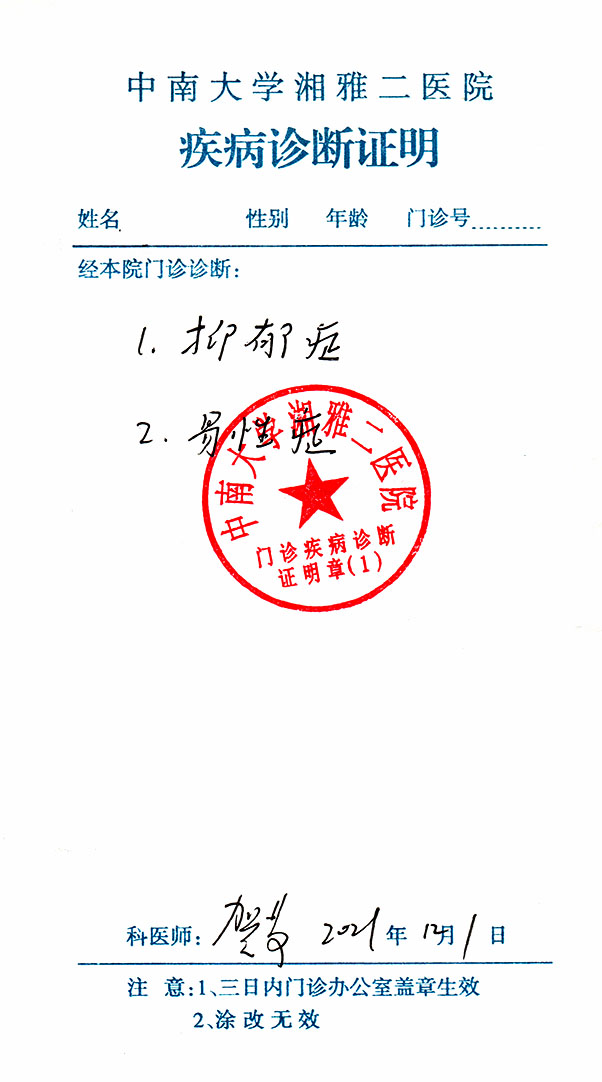 中南大学湘雅二医院
疾病诊断证明
姓名 性别 年龄 门诊号
经本院门诊诊断:
1. 抑郁症
2. 易性症
中南大学湘雅二医院
门诊疾病诊断
证明章(1)
科医师: 2021年12月1日
注 意:1、三日内门诊办公室盖章生效
2、涂改无效